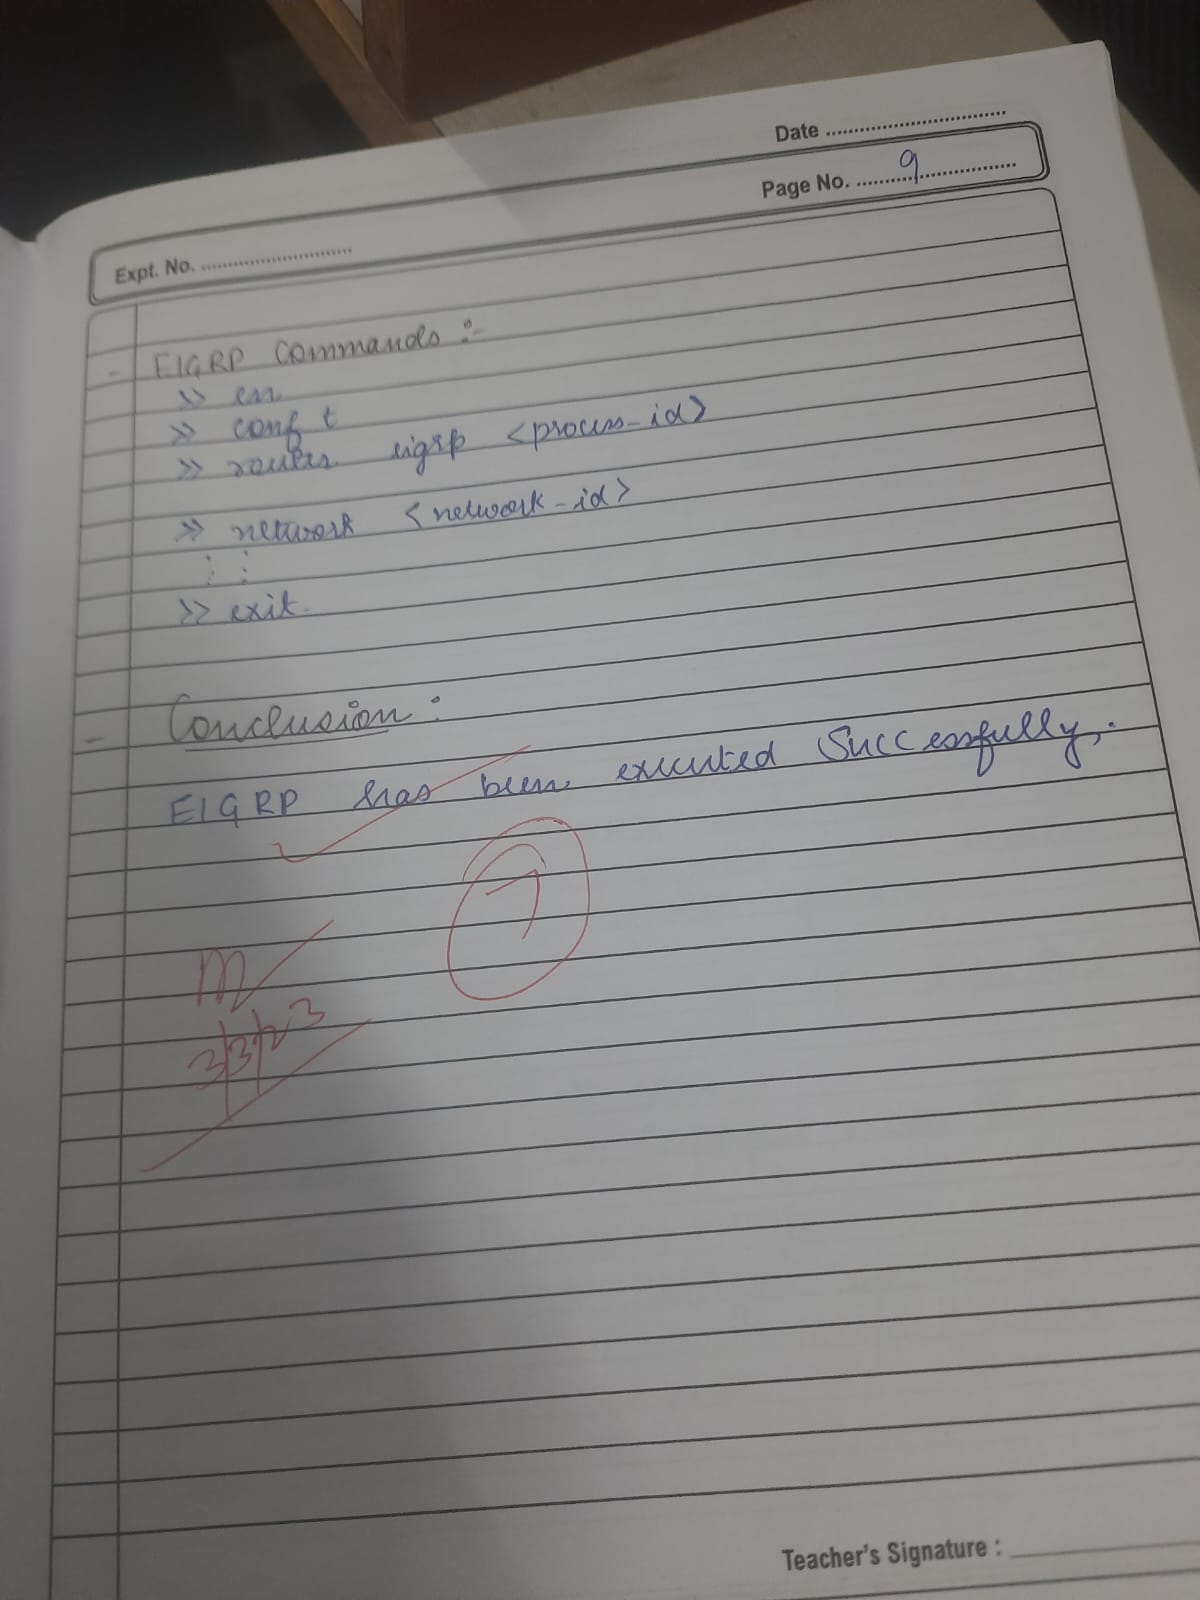 Date
Page No. 9
Expt. No.
- EIGRP Commands :-
>> en
>> conf t
>> router eigrp <process_id>
>> network <network_id>
: :
>> exit.
- Conclusion :
EIGRP has been executed Successfully.
7
3/3/23
Teacher's Signature :